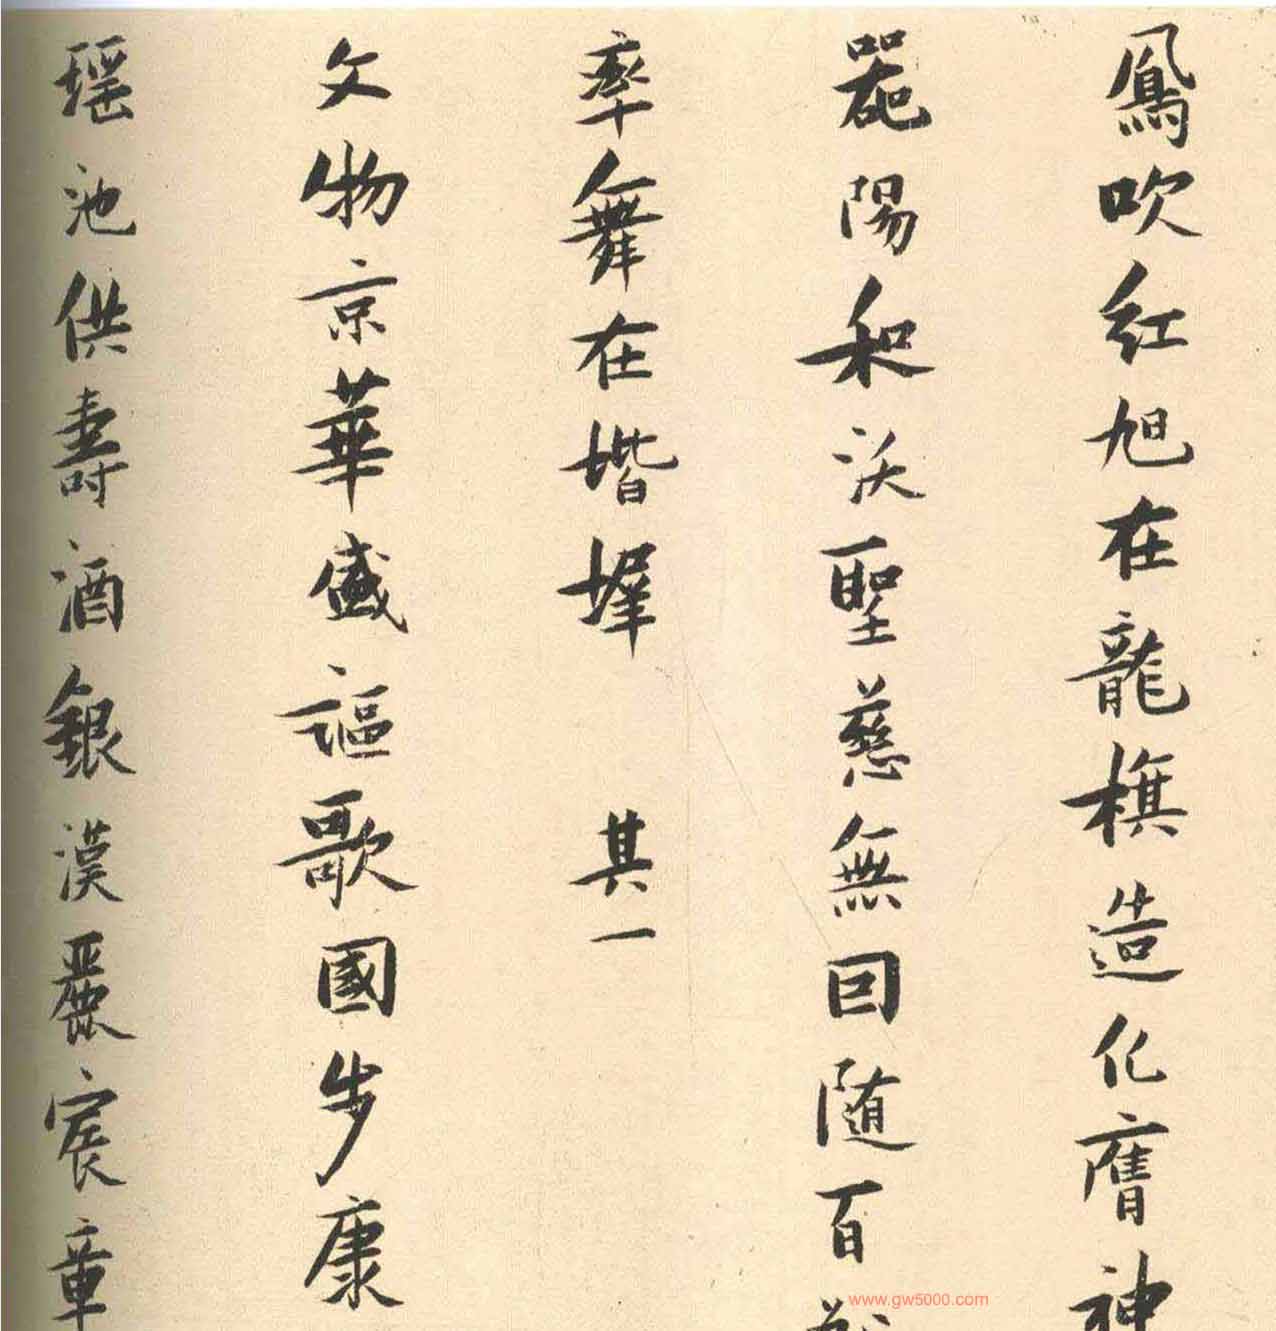 鳳吹紅旭在龍旗造化膺神
器陽和沃聖慈無回随百
率舞在堦墀 其一
文物京華盛謳歌國步康
瑶池供壽酒銀漢麗宸章
www.gw5000.com